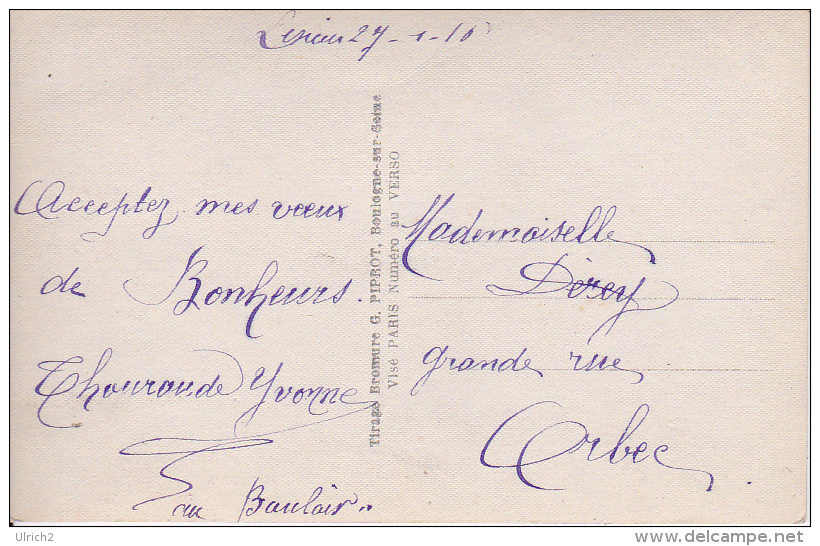 27-1-16
Acceptez mes vœux
de Bonheurs.
Yvonne
au
Tirage Bromure G. PIPROT, Boulogne-sur-Seine
Visé PARIS Numéro au VERSO
Mademoiselle
Dérey
grande rue
Orbec
Ulrich2
delcampe.net